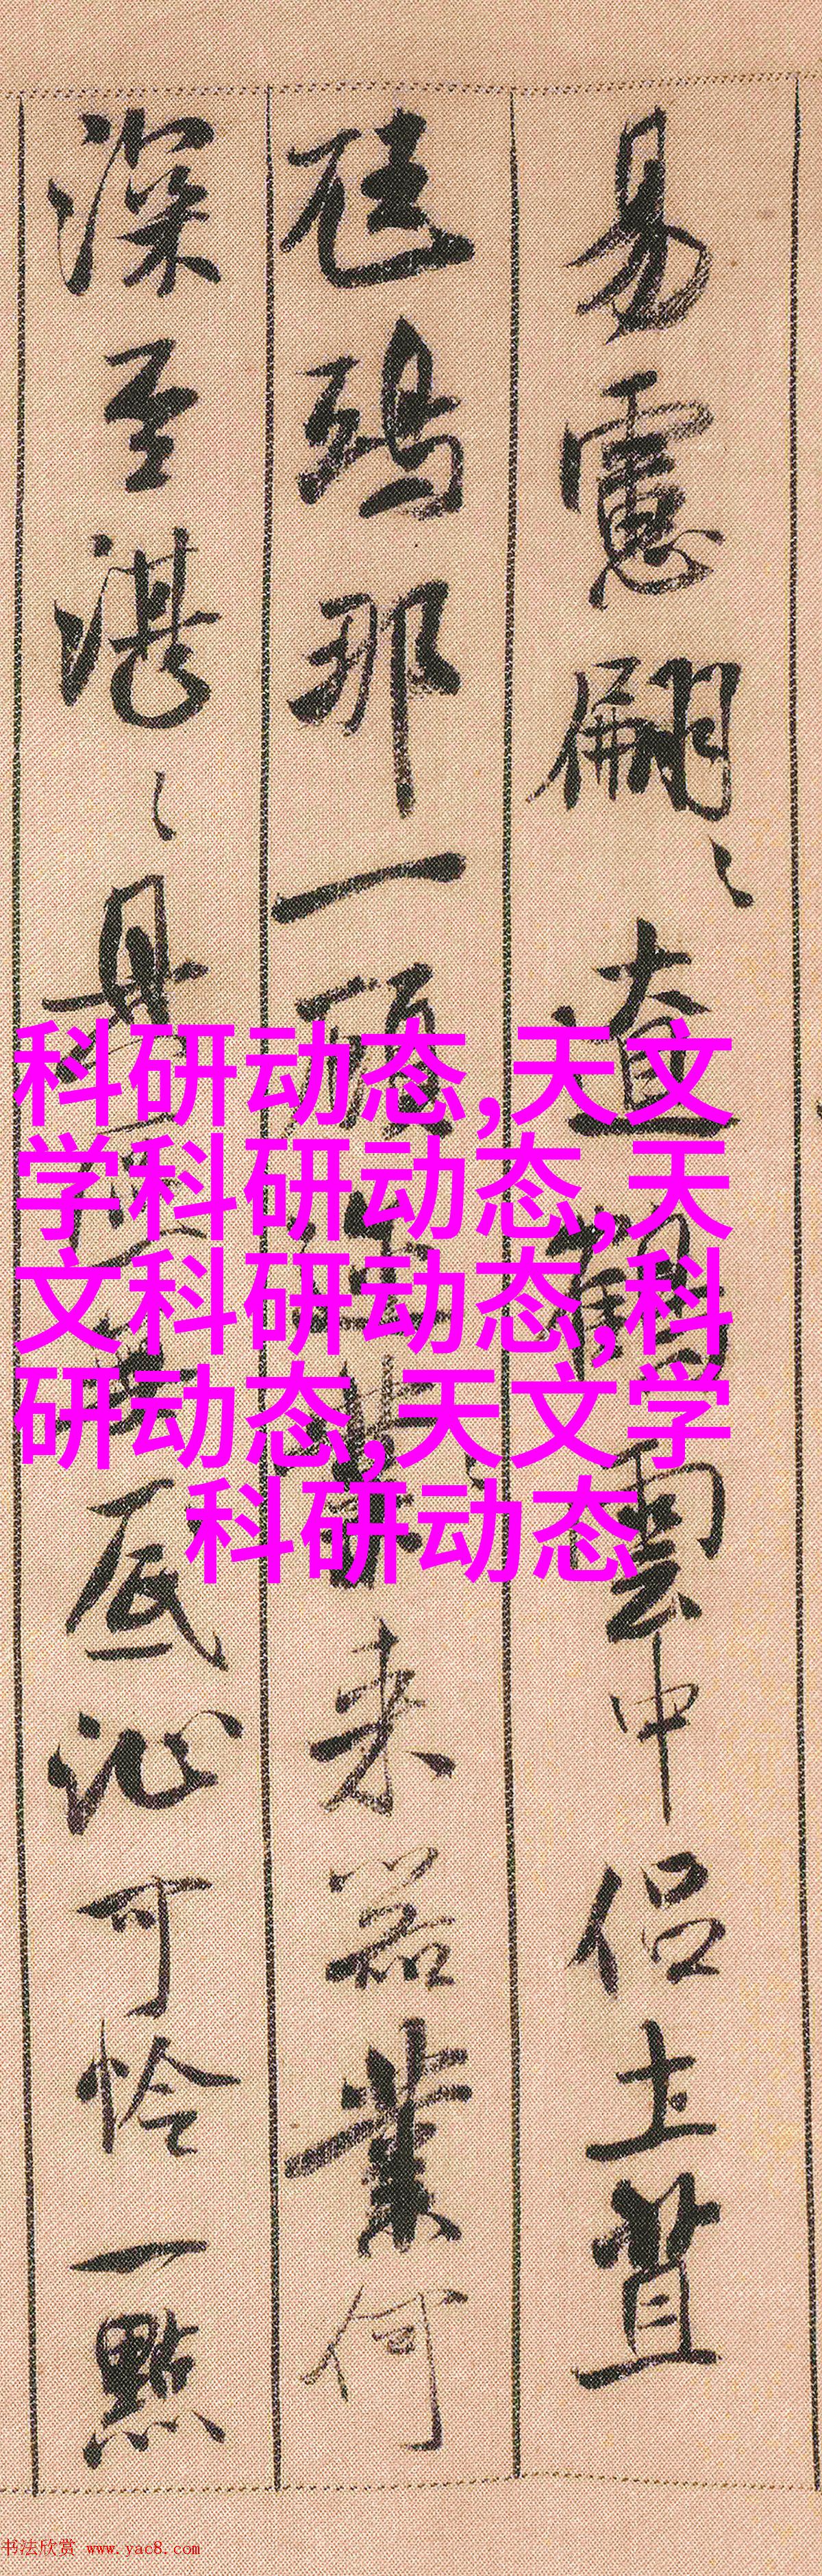 易慮翩〻直
雲中侶土苴
鵶那一頋
来若業何
深至湛〻
底沁可怜一點
科研动态,天文
学科研动态,天
文科研动态,科
研动态,天文学
科研动态
书法欣赏 www.yac8.com